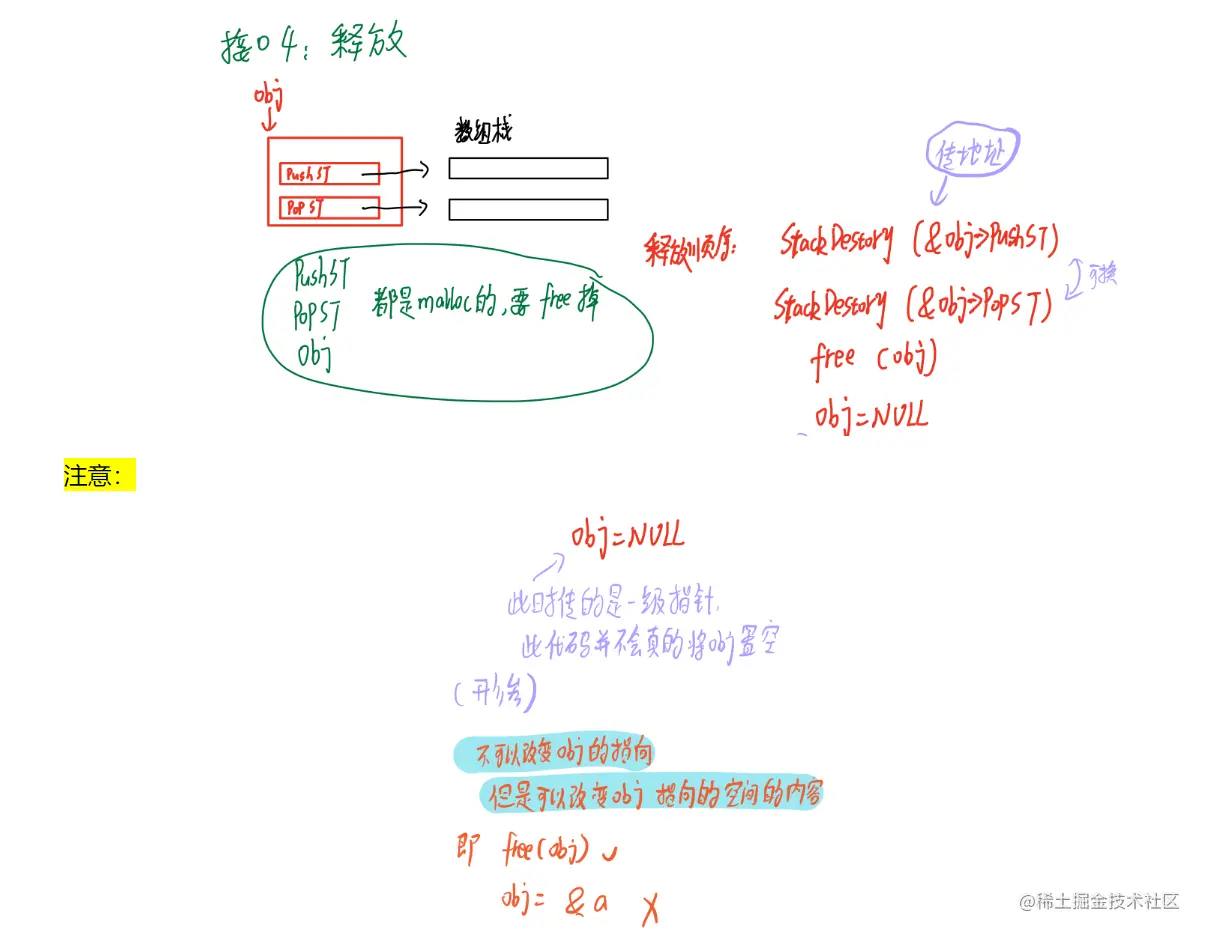 接口4：释放
obj
数组栈
PushST
PoPST
传地址
释放顺序：
StackDestory (&obj->PushST)
StackDestory (&obj->PoPST)
可换
free (obj)
obj=NULL
PushST
PoPST
Obj
都是malloc的，要 free 掉
注意：
obj=NULL
此时传的是一级指针，
此代码并不会真的将obj置空
(形参)
不可以改变obj的指向
但是可以改变obj 指向的空间的内容
即 free(obj) ✓
obj= &a X
@稀土掘金技术社区